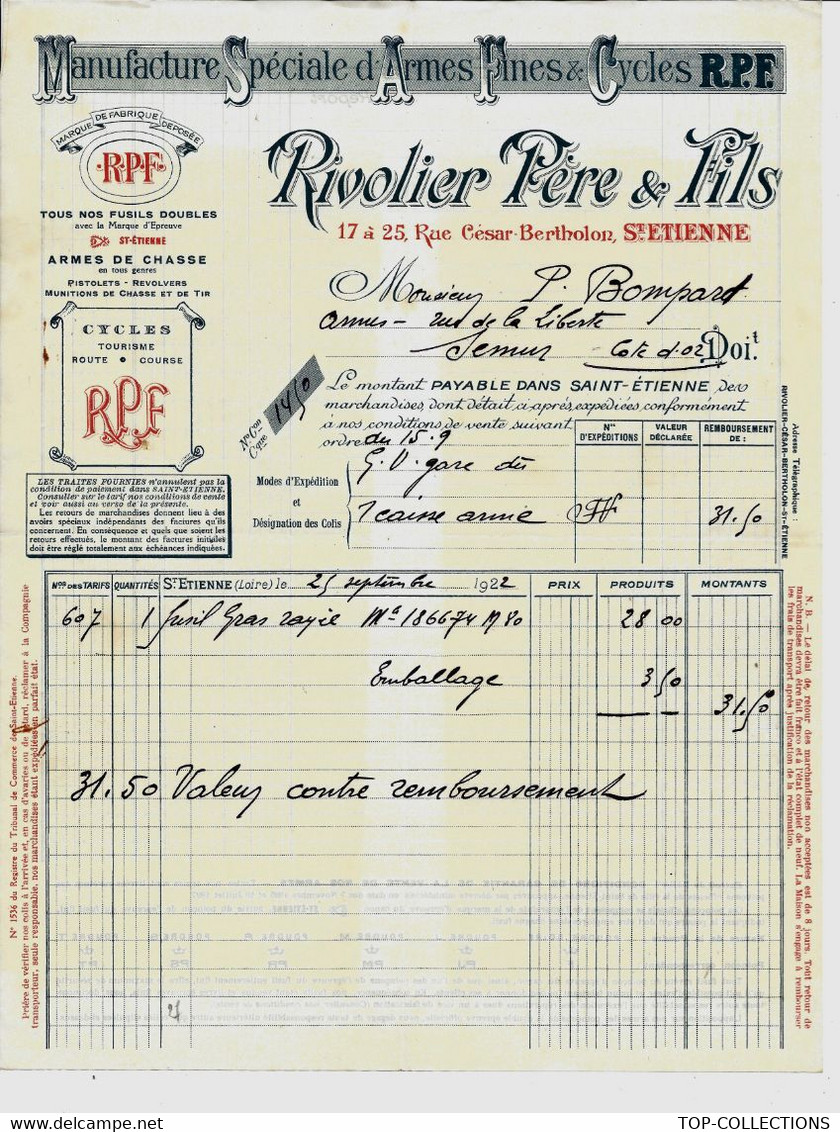 Manufacture Spéciale d'Armes Fines & Cycles R.P.F.
MARQUE DE FABRIQUE DEPOSÉE
R.P.F.
TOUS NOS FUSILS DOUBLES
avec la Marque d'Epreuve
ST-ÉTIENNE
ARMES DE CHASSE
en tous genres
PISTOLETS - REVOLVERS
MUNITIONS DE CHASSE ET DE TIR
CYCLES
TOURISME
ROUTE • COURSE
RPF
Rivolier Père & Fils
17 à 25, Rue César-Bertholon, ST ETIENNE
Monsieur P. Bompard
Armes - rue de la Liberté
Semur Cote d'or Doit
Le montant PAYABLE DANS SAINT-ÉTIENNE, des
marchandises, dont détail ci-après, expédiées, conformément
à nos conditions de vente suivant
ordre du 15.9
1450
Modes d'Expédition
et
Désignation des Colis
G. V. gare dû
1 caisse arme
Nos D'EXPÉDITIONS
VALEUR DÉCLARÉE
REMBOURSEMENT DE :
31.50
Adresse Télégraphique :
RIVOLIER-CÉSAR-BERTHOLON-ST-ÉTIENNE
LES TRAITES FOURNIES n'annulent pas la
condition de paiement dans SAINT-ETIENNE.
Consulter sur le tarif nos conditions de vente
et voir aussi au verso de la présente.
Les retours de marchandises donnent lieu à des
avoirs spéciaux indépendants des factures qu'ils
concernent. En conséquence et quels que soient les
retours effectués, le montant des factures initiales
doit être réglé totalement aux échéances indiquées.
Nos DES TARIFS QUANTITÉS ST ETIENNE (Loire) le 25 septembre 1922 PRIX PRODUITS MONTANTS
607 1 fusil Gras rayé Mle 186674 M 80 28 00
Emballage 3 50
31.50
31.50 Valeur contre remboursement
N° 1536 du Registre du Tribunal de Commerce de Saint-Etienne.
Prière de vérifier nos colis à l'arrivée et, en cas d'avaries ou de retard, réclamer à la Compagnie
transporteur, seule responsable, nos marchandises étant expédiées en parfait état.
N. B. — Le délai de retour des marchandises non acceptées est de 8 jours. Tout retour de
marchandises devra être fait franco et à l'état complet de neuf. La Maison s'engage à rembourser
les frais de transport après justification de la réclamation.
TOP-COLLECTIONS